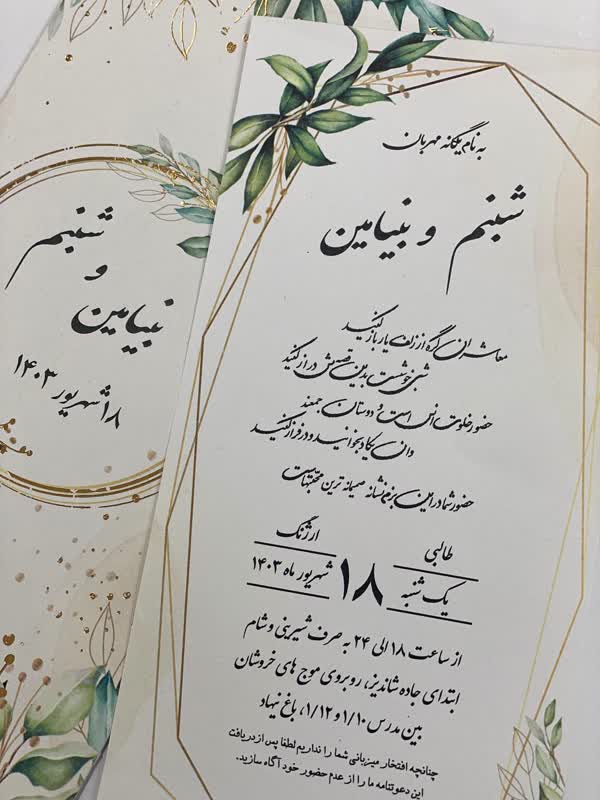 به نام یگانه مهربان
شبنم و بنیامین
معاشران گره از زلف یار باز کنید
شبی خوشست بدین قصه‌اش دراز کنید
حضور خلوت انس است و دوستان جمعند
وان یکاد بخوانید و در فراز کنید
حضور شما در این بزم نشانه صمیمانه ترین محبتهاست
طالبی
ارژنگ
یک شنبه
۱۸
شهریور ماه ۱۴۰۳
از ساعت ۱۸ الی ۲۴ به صرف شیرینی و شام
ابتدای جاده شاندیز، روبروی موج های خروشان
بین مدرس ۱/۱۰ و ۱/۱۲، باغ نیهاد
چنانچه افتخار میزبانی شما را نداریم لطفا پس از دریافت
این دعوتنامه ما را از عدم حضور خود آگاه سازید.
شبنم
و
بنیامین
۱۸ شهریور ۱۴۰۳